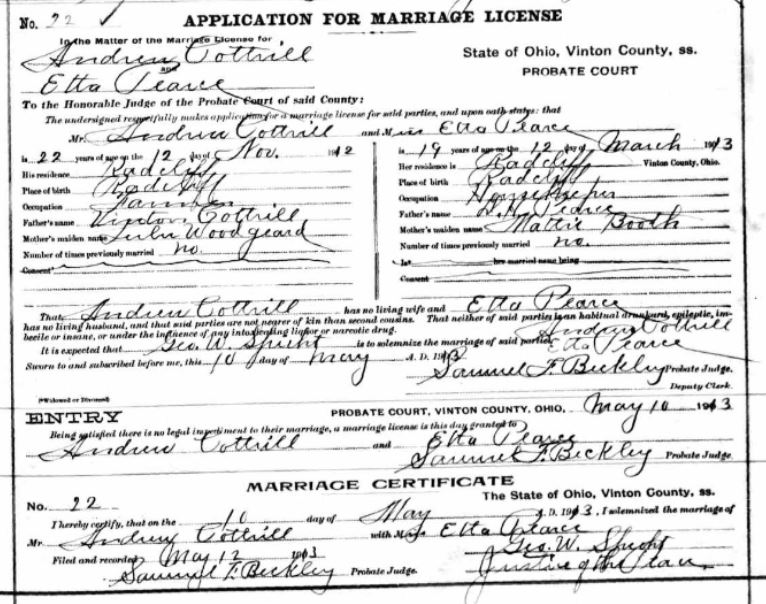 No. 22
APPLICATION FOR MARRIAGE LICENSE
In the Matter of the Marriage License for
Andrew Cottrill
and
Etta Pearce
State of Ohio, Vinton County, ss.
PROBATE COURT
To the Honorable Judge of the Probate Court of said County:
The undersigned respectfully makes application for a marriage license for said parties, and upon oath states: that
Mr. Andrew Cottrill and Miss Etta Pearce
is 22 years of age on the 12 day of Nov. 1912
His residence Radcliff
Place of birth Radcliff
Occupation Farmer
Father's name Vinton Cottrill
Mother's maiden name Woodgeard
Number of times previously married no.
Consent
is 19 years of age on the 12 day of March 1913
Her residence is Radcliff Vinton County, Ohio.
Place of birth Radcliff
Occupation Housekeeper
Father's name Pearce
Mother's maiden name Mattie Booth
Number of times previously married no.
her married name being
Consent
That Andrew Cottrill has no living wife and Etta Pearce
has no living husband, and that said parties are not nearer of kin than second cousins. That neither of said parties is an habitual drunkard, epileptic, im-
becile or insane, or under the influence of any intoxicating liquor or narcotic drug.
Andrew Cottrill
It is expected that Geo. W. Specht is to solemnize the marriage of said parties.
Etta Pearce
Sworn to and subscribed before me, this 10 day of May A. D. 1913
Samuel F. Beckley Probate Judge.
Deputy Clerk.
(*Widowed or Divorced)
ENTRY
PROBATE COURT, VINTON COUNTY, OHIO, May 10 1913
Being satisfied there is no legal impediment to their marriage, a marriage license is this day granted to
Andrew Cottrill and Etta Pearce
Samuel F. Beckley Probate Judge.
MARRIAGE CERTIFICATE
No. 22
The State of Ohio, Vinton County, ss.
I hereby certify, that on the 10 day of May A. D. 1913, I solemnized the marriage of
Mr. Andrew Cottrill with Miss Etta Pearce
Filed and recorded May 12 1913
Geo. W. Specht
Samuel F. Beckley Probate Judge.
Justice of the Peace